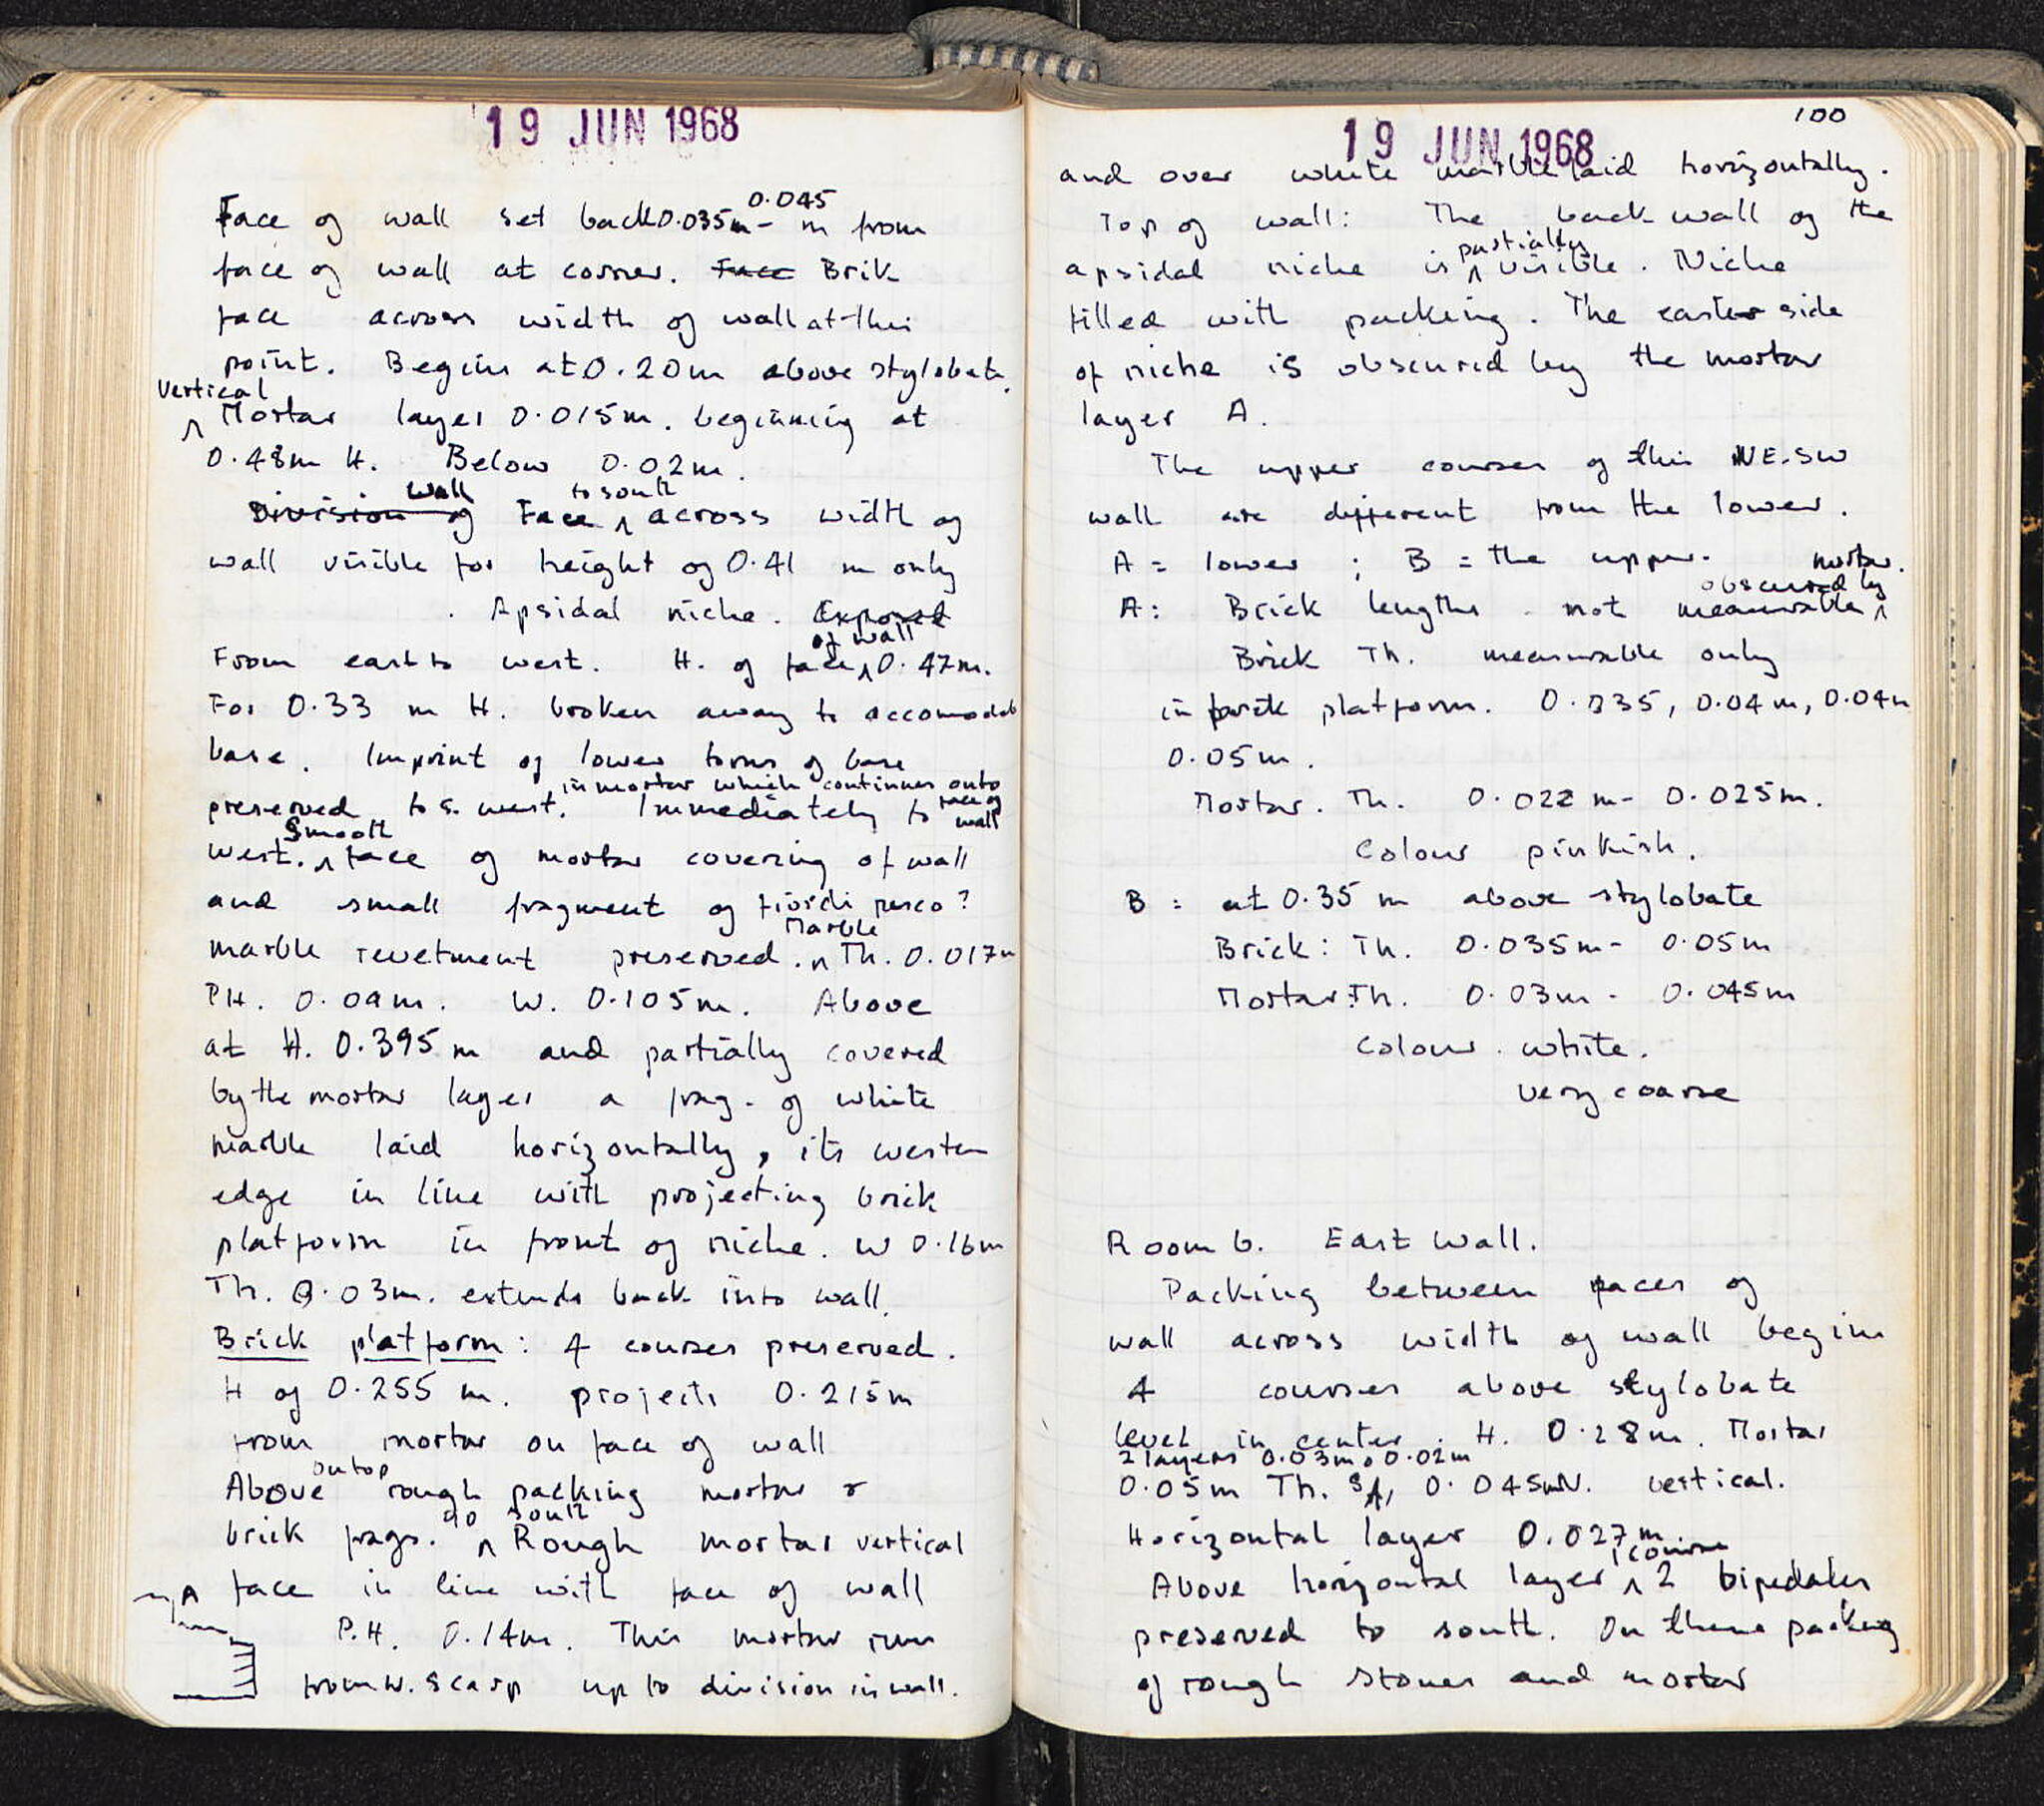 19 JUN 1968
Face of wall set back 0.035m - 0.045 m from
face of wall at corner. Face Brik
face across width of wall at this
point. Begins at 0.20m above stylobate.
Vertical
Mortar layer 0.015m. beginning at
0.48m H. Below 0.02m.
Division of wall Face to south across width of
wall visible for height of 0.41 m only
. Apsidal niche. Exposed
From east to west. H. of face of wall 0.47m.
For 0.33 m H. broken away to accomodate
base. Imprint of lower torus of base
preserved to s. west. in mortar which continues onto face of wall Immediately to
west. Smooth face of mortar covering of wall
and small fragment of fior di pesco?
marble revetment preserved. Marble Th. 0.017m
PH. 0.09m. W. 0.105m. Above
at H. 0.395 m and partially covered
by the mortar layer a frag. of white
marble laid horizontally, its western
edge in line with projecting brick
platform in front of niche. W 0.16m
Th. 0.03m. extends back into wall.
Brick platform: 4 courses preserved.
H of 0.255 m. projects 0.215m
from mortar on face of wall
Above on top rough packing mortar &
brick frags. to south Rough mortar vertical
A face in line with face of wall
P.H. 0.14m. This mortar runs
from W. scarp up to division in wall.
19 JUN 1968
100
and over white marble laid horizontally.
Top of wall: The back wall of the
apsidal niche is partially visible. Niche
filled with packing. The easter side
of niche is obscured by the mortar
layer A.
The upper courses of this NE-SW
wall are different from the lower.
A = lower ; B = the upper.
A: Brick lengths not measurable obscured by mortar.
Brick Th. measurable only
in brick platform. 0.035, 0.04m, 0.04m
0.05m.
Mortar. Th. 0.022m - 0.025m.
Colour pinkish.
B = at 0.35 m above stylobate
Brick: Th. 0.035m - 0.05m
Mortar: Th. 0.03m - 0.045m
Colour. white.
very coarse
Room 6. East wall.
Packing between faces of
wall across width of wall begins
4 courses above stylobate
level in center. H. 0.28m. Mortar
2 layers 0.03m, 0.02m
0.05m Th. S, 0.045m N. vertical.
Horizontal layer 0.027m.
Above horizontal layer 1 course 2 bipedales
preserved to south. On these packing
of rough stones and mortar